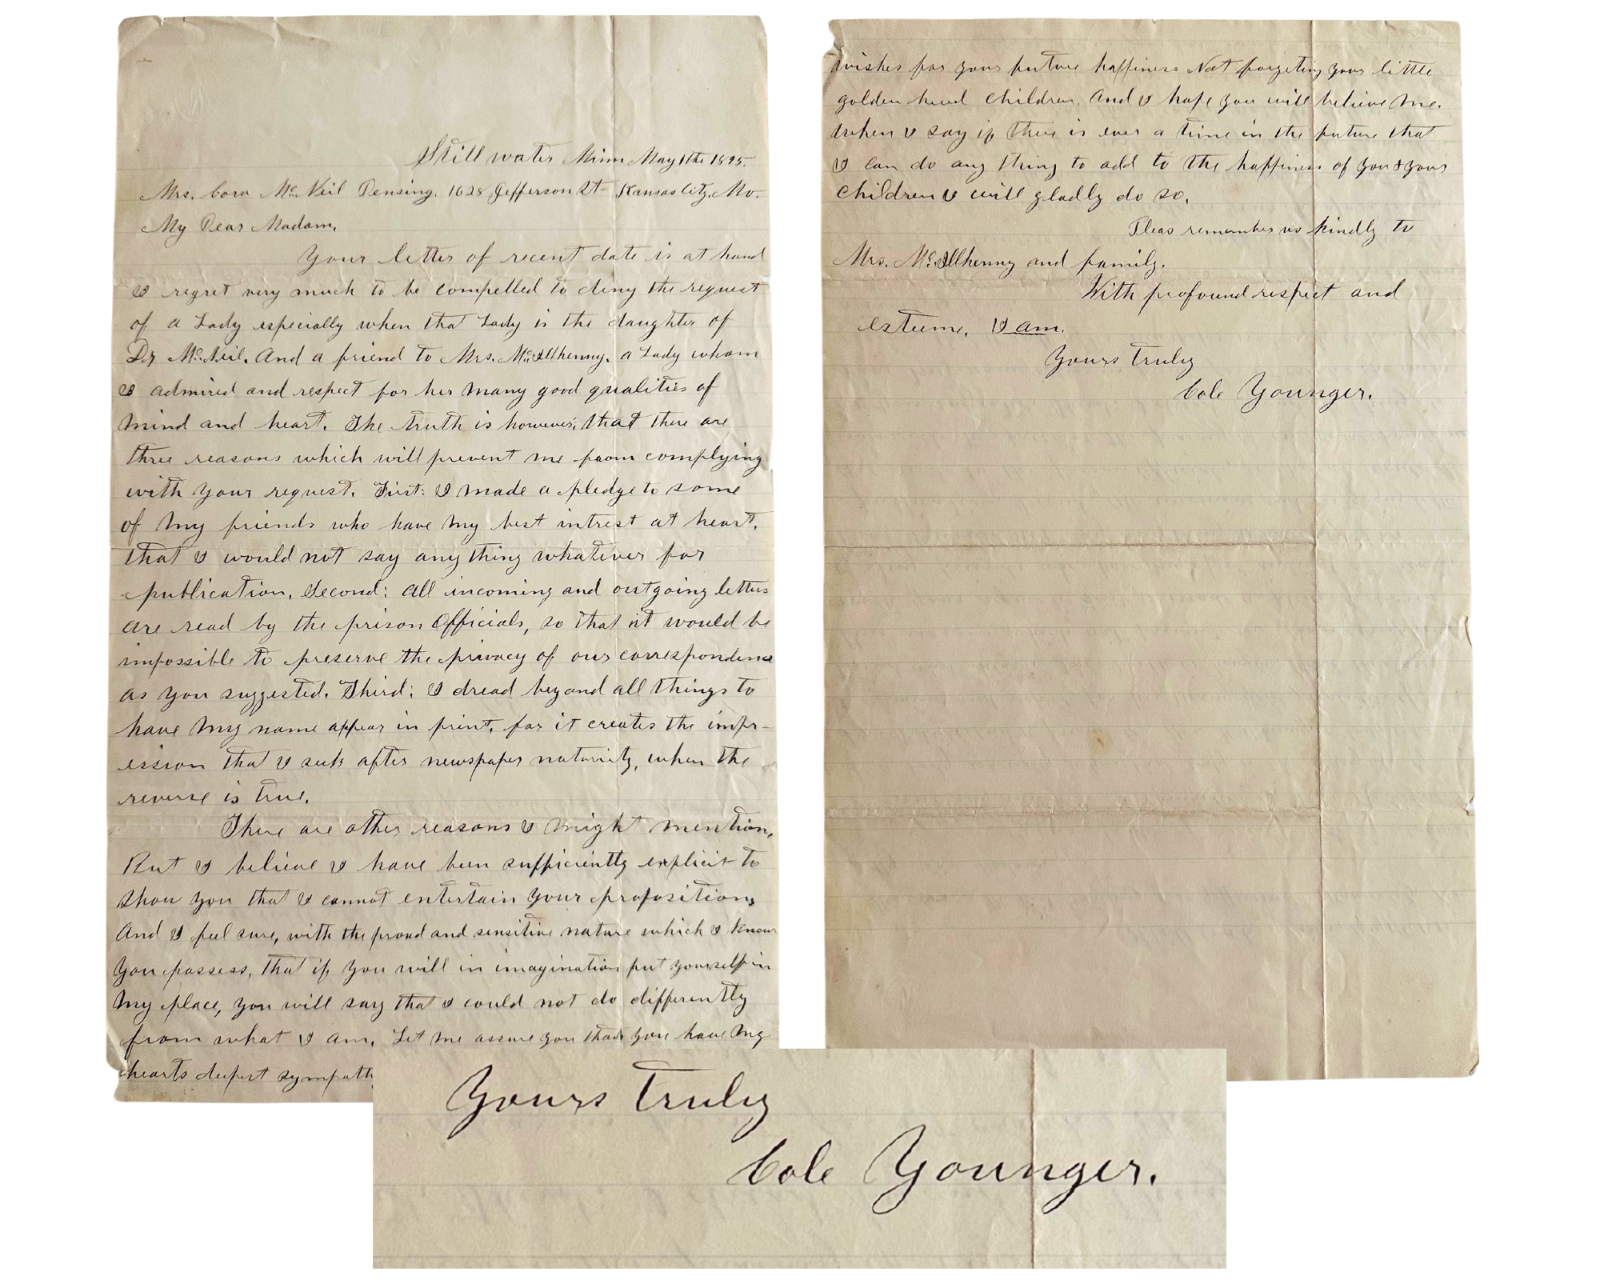 Still water Minn May 1th 1895.
Mrs. Cora McNeil Pensing. 1628 Jefferson St- Kansas City. Mo.
My Dear Madam.
Your letter of recent date is at hand
I regret very much to be compelled to deny the request
of a Lady especially when that Lady is the daughter of
Dr McNeil. And a friend to Mrs. McIlhenny. a Lady whom
I admired and respect for her many good qualities of
mind and heart. The truth is however, that there are
three reasons which will prevent me from complying
with your request. First: I made a pledge to some
of my friends who have my best intrest at heart.
that I would not say any thing whatever for
publication. Second: all incoming and outgoing letters
are read by the prison Officials, so that it would be
impossible to preserve the privacy of our correspondence
as you suggested. Third: I dread beyond all things to
have my name appear in print, for it creates the impr-
ession that I seek after newspaper notoriety, when the
reverse is true.
There are other reasons I might mention.
But I believe I have been sufficiently explicit to
show you that I cannot entertain your proposition,
And I feel sure, with the proud and sensitive nature which I know
you possess, that if you will in imagination put yourself in
my place, you will say that I could not do differently
from what I am. Let me assure you that you have my
hearts deepest sympath
wishes for your future happiness Not forgeting your little
golden haird children. And I hope you will believe me.
when I say if there is ever a time in the future that
I can do any thing to add to the happiness of you & your
children I will gladly do so.
Pleas remember us kindly to
Mrs. McIlhenny and family.
With profound respect and
esteeme. I am.
Yours Truly
Cole Younger.
Yours Truly
Cole Younger.